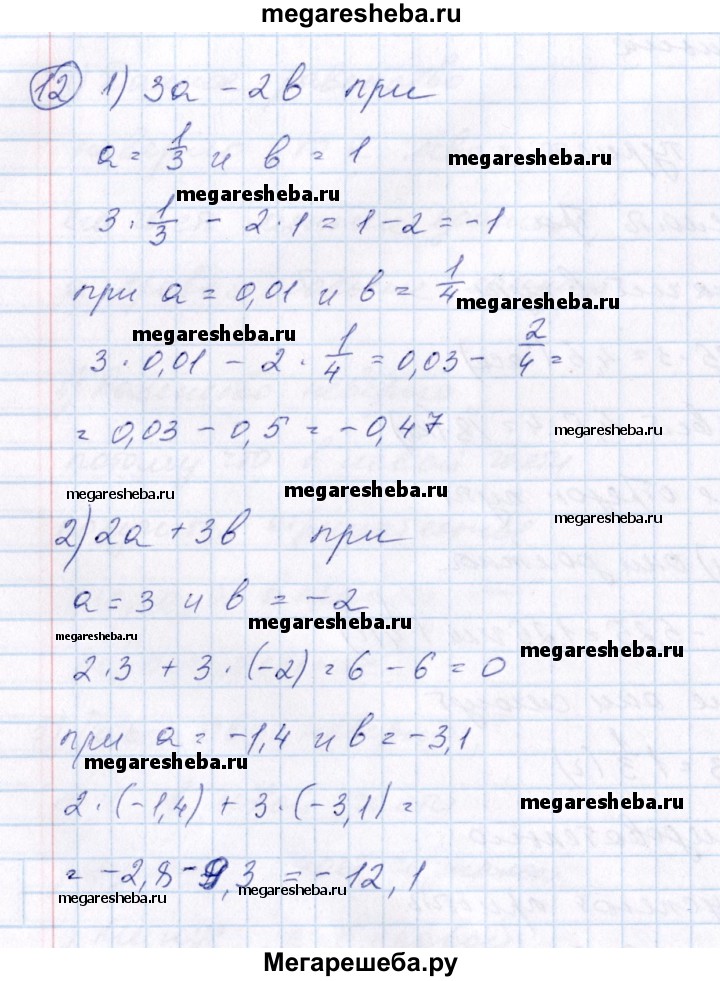 megaresheba.ru
12 1) 3а - 2в при
а = 1/3 и в = 1
megaresheba.ru
megaresheba.ru
3 · 1/3 - 2 · 1 = 1 - 2 = -1
при а = 0,01 и в = 1/4
megaresheba.ru
megaresheba.ru
3 · 0,01 - 2 · 1/4 = 0,03 - 2/4 =
= 0,03 - 0,5 = -0,47
megaresheba.ru
megaresheba.ru
megaresheba.ru
megaresheba.ru
2) 2а + 3в при
а = 3 и в = -2
megaresheba.ru
megaresheba.ru
megaresheba.ru
2 · 3 + 3 · (-2) = 6 - 6 = 0
при а = -1,4 и в = -3,1
megaresheba.ru
megaresheba.ru
2 · (-1,4) + 3 · (-3,1) =
= -2,8 - 9,3 = -12,1
megaresheba.ru
megaresheba.ru
megaresheba.ru
Мегарешеба.ру